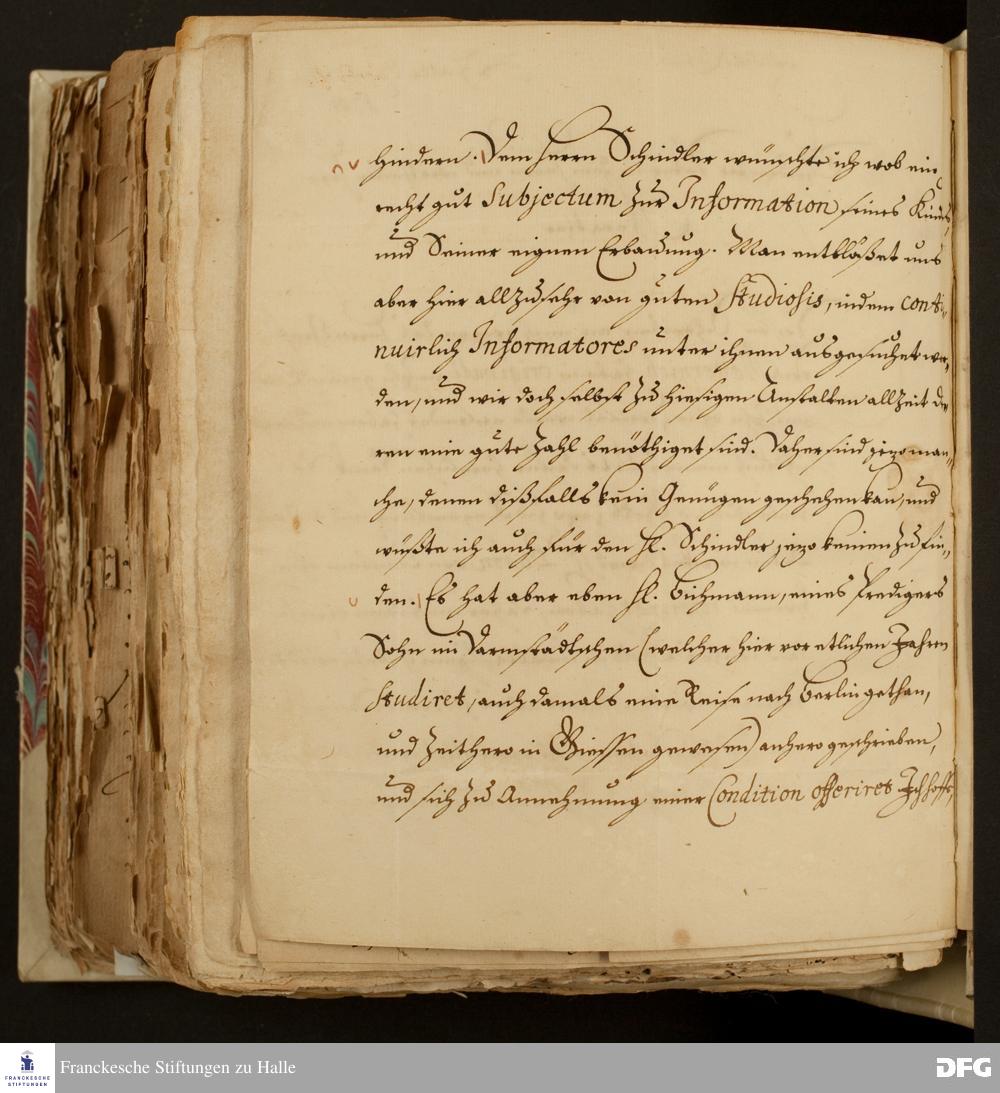 hindern. Dem Herrn Schindler wünschte ich wohl ein
recht gut Subjectum zur Information seines Kindes,
und Seiner eignen Erbauung. Man entblößet uns
aber hier allzusehr von guten Studiosis, indem conti-
nuirlich Informatores unter ihnen ausgesuchet wer-
den, und wir doch selbst zu hiesigen Anstalten allzeit de-
ren eine gute Zahl benöthiget sind. Daher sind jezo man-
che, denen dißfalls kein Genügen geschehen kan, und
wüßte ich auch für den H. Schindler jezo keinen zu fin-
den. Es hat aber eben H. Bichmann, eines Predigers
Sohn im Darmstädtschen (welcher hier vor etlichen Jahren
studiret, auch damals eine Reise nach Berlin gethan,
und zeithero in Giessen gewesen) anhero geschrieben,
und sich zu Annehmung einer Condition offeriret Ich hoffe,
Franckesche Stiftungen zu Halle
FRANCKESCHE
STIFTUNGEN
DFG